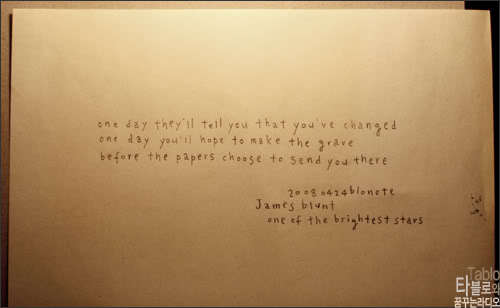 one day they'll tell you that you've changed
one day you'll hope to make the grave
before the papers choose to send you there
20080424blonote
James blunt
one of the brightest stars
Tablo
타블로와
꿈꾸는라디오